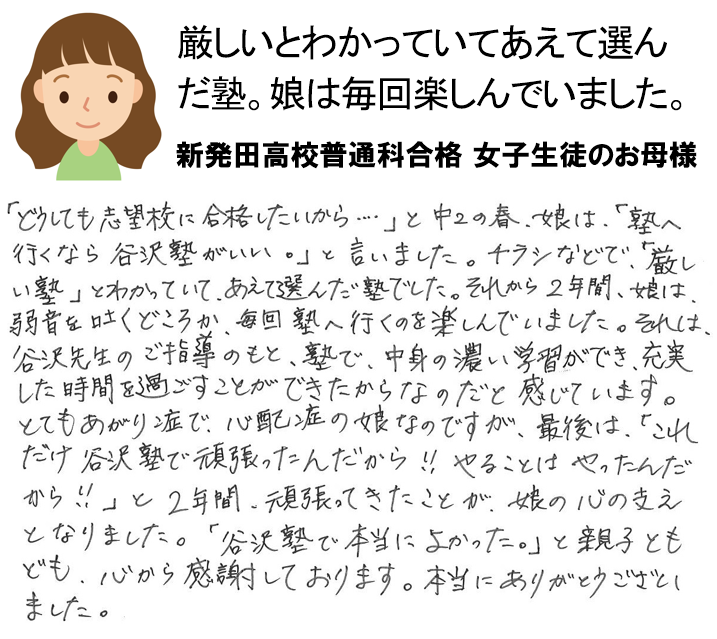 厳しいとわかっていてあえて選ん
だ塾。娘は毎回楽しんでいました。
新発田高校普通科合格 女子生徒のお母様
「どうしても志望校に合格したいから‥‥」と中2の春、娘は、「塾へ
行くなら谷沢塾がいい。」と言いました。チラシなどで、「厳し
い塾」とわかっていて、あえて選んだ塾でした。それから2年間、娘は、
弱音を吐くどころか、毎回塾へ行くのを楽しんでいました。それは、
谷沢先生のご指導のもと、塾で、中身の濃い学習ができ、充実
した時間を過ごすことができたからなのだと感じています。
とてもあがり症で、心配症の娘なのですが、最後は、「これ
だけ谷沢塾で頑張ったんだから!!やることはやったんだ
から!!」と2年間、頑張ってきたことが、娘の心の支え
となりました。「谷沢塾で本当によかった。」と親子とも
ども、心から感謝しております。本当にありがとうござい
ました。